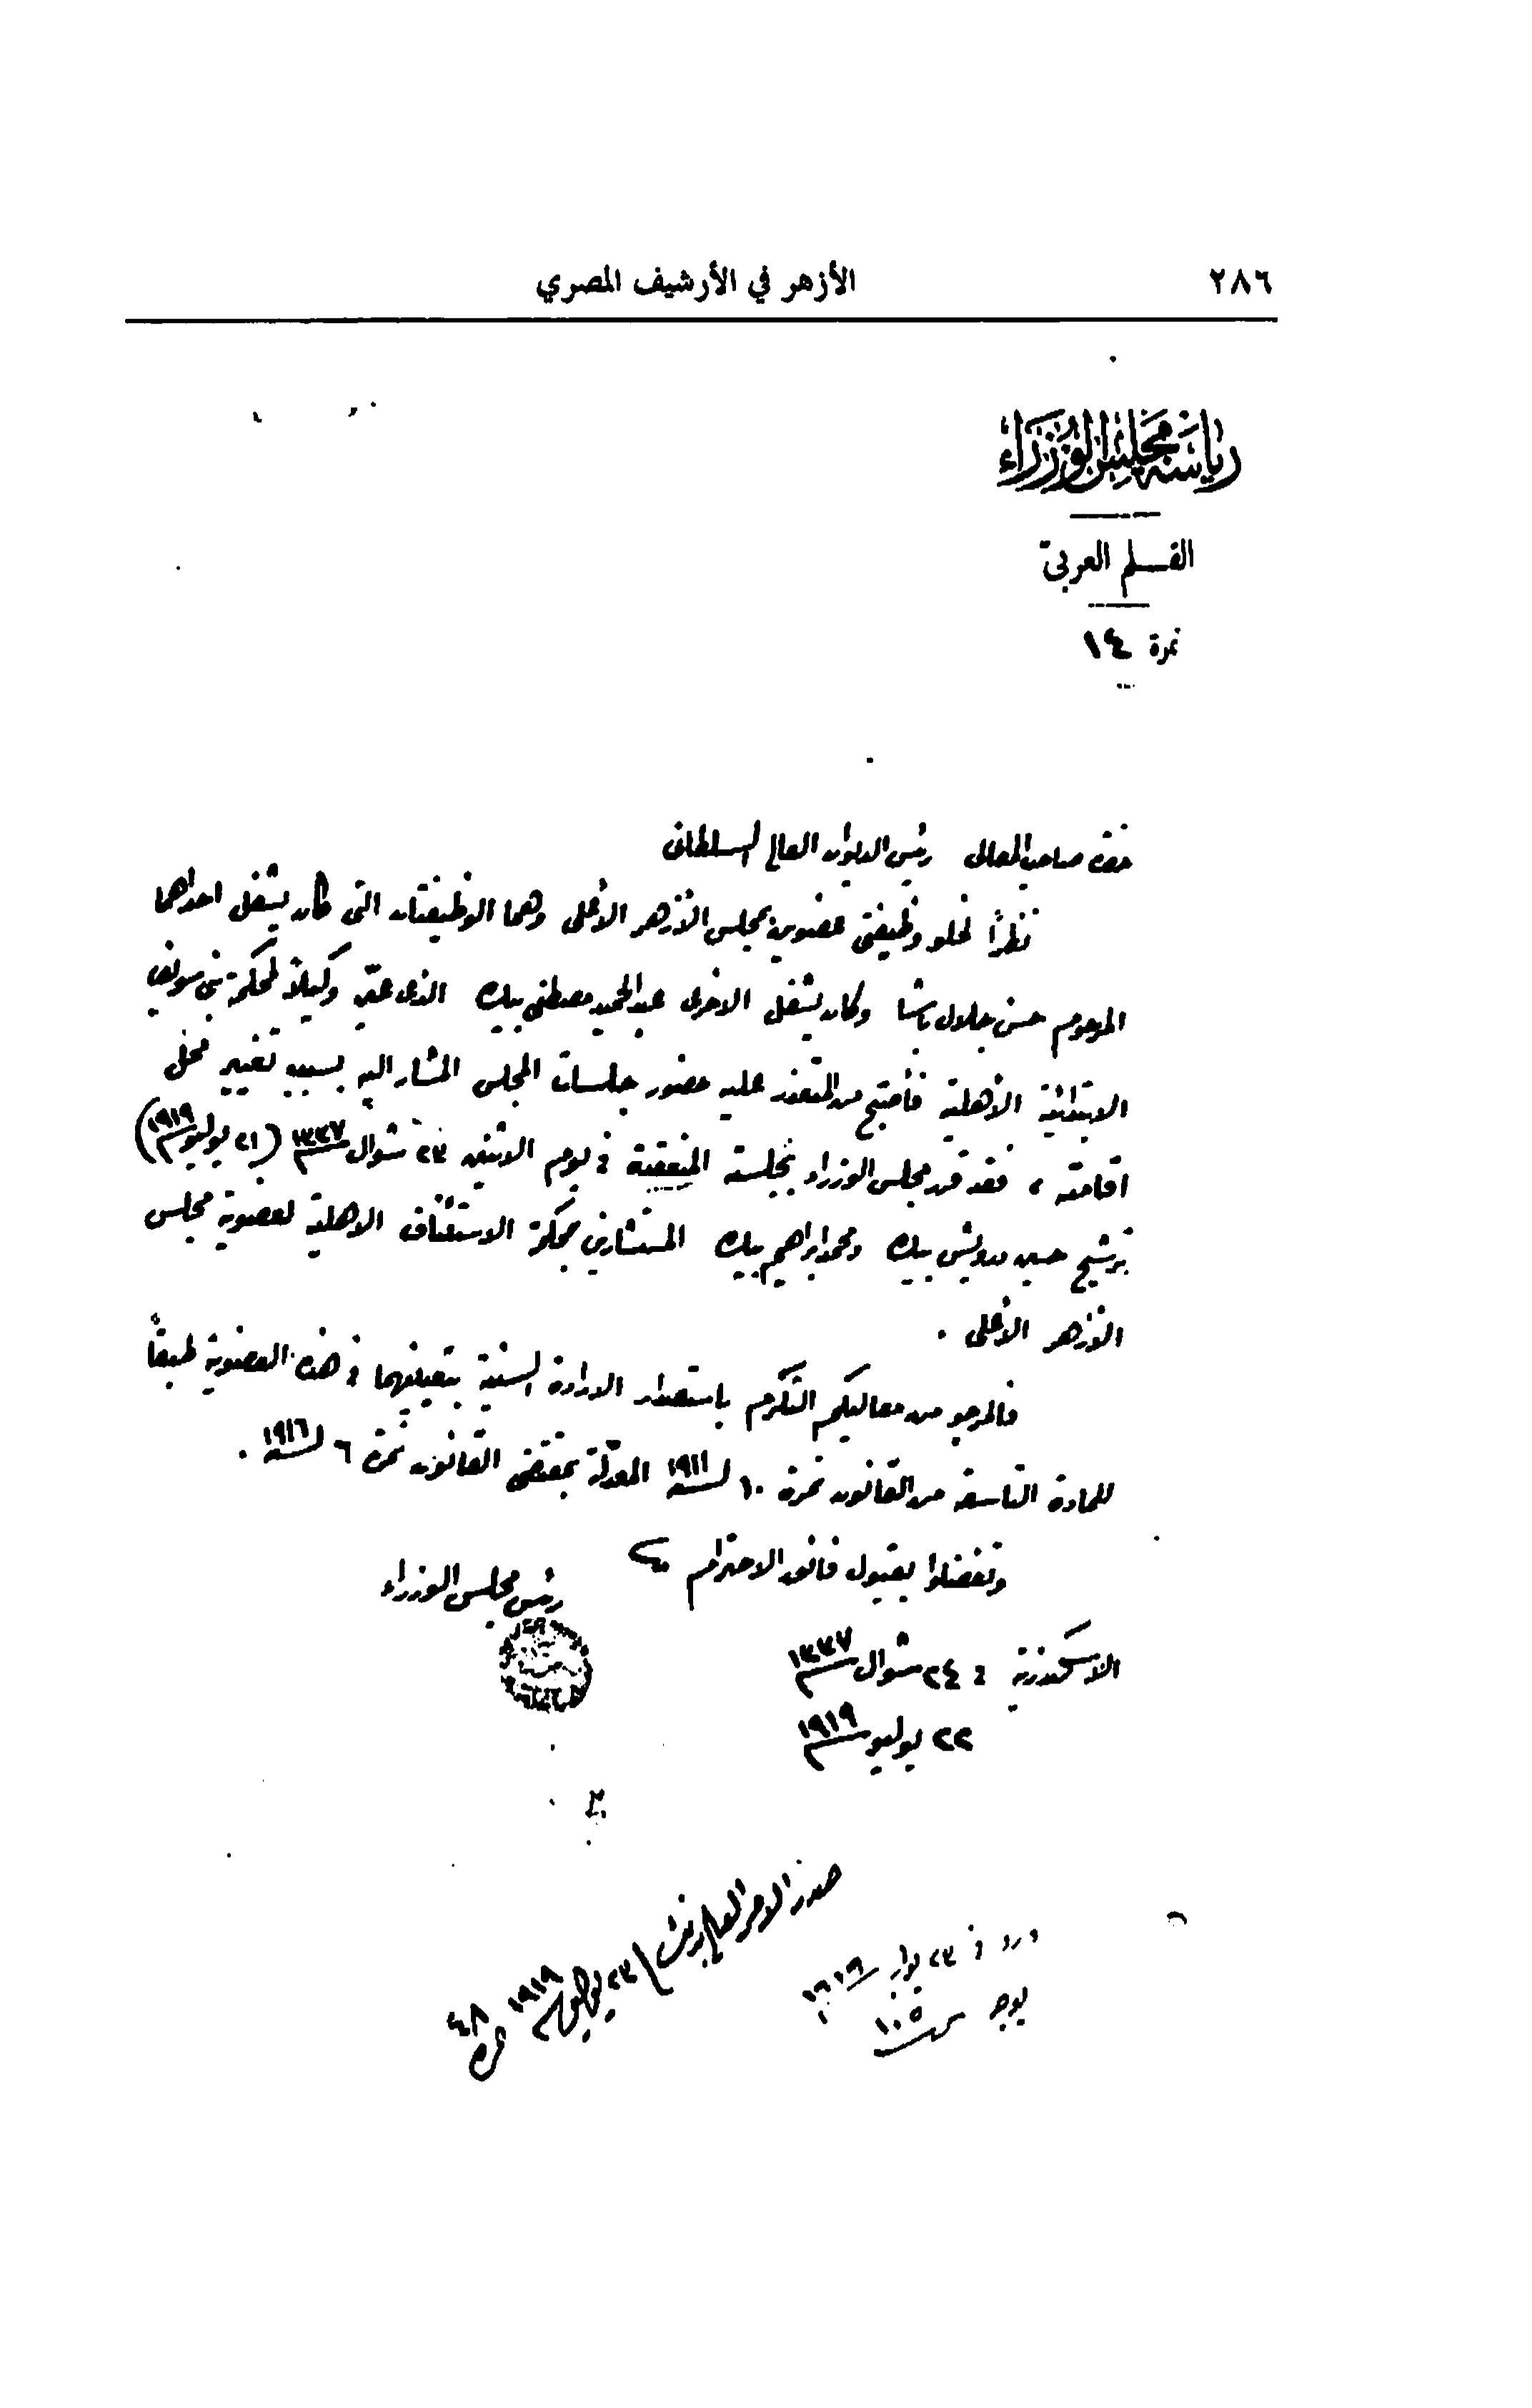 ٢٨٦
الأزهر في الأرشيف المصري
رياسة مجلس الوزراء
القسم العربى
نمرة ١٤
حضرة صاحب المعالى رئيس الديوان العالى السلطانى
نظراً لخلو وظيفتى عضوين بمجلس الأزهر الأعلى وهما الوظيفتان التى كان يشغل احداهما
المرحوم حسن جلال باشا وكان يشغل الاخرى عبد الحميد مصطفى بيك الذى عيّن وكيلاً لمحكمة بنى سويف
الابتدائية الأهلية فأصبح من المتعذر عليه حضور جلسات المجلس المشار اليه بسبب تغيير محل
اقامته ، فقد قرر مجلس الوزراء بجلسته المنعقدة فى يوم الاثنين ٢٣ شوال سنة ١٣٣٧ (٢١ يوليو سنة ١٩١٩)
ترشيح حسين درويش بيك ومحمد ابراهيم بيك المستشارين بمحكمة الاستئناف الاهلية لعضوية مجلس
الأزهر الأعلى .
فالمرجو من معاليكم التكرم باستصدار الارادة السنية بتعيينهما فى هذه العضوية طبقاً
للمادة التاسعة من القانون نمرة ١٠ لسنة ١٩١١ المعدّلة بمقتضى القانون نمرة ٦ لسنة ١٩١٦ .
وتفضلوا بقبول فائق الاحترام
رئيس مجلس الوزراء
الاسكندرية فى ٢٤ شوال سنة ١٣٣٧
٢٢ يوليو سنة ١٩١٩
صدر الامر العالى بتاريخ ٢٣ يوليو سنة ١٩١٩
نمرة ٤٨
ورد فى ٢٣ يوليو سنة ١٩١٩
١٠٥